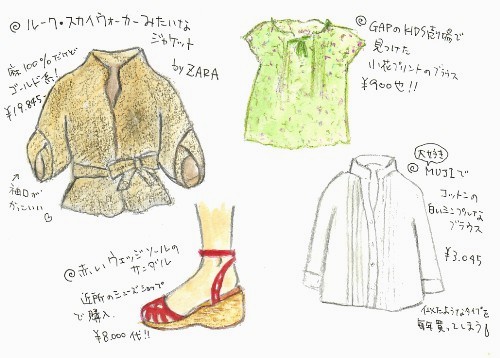 @ルーク・スカイウォーカーみたいな
ジャケット
by ZARA
麻100%だけど
ゴールド系!
¥19.845-
↑
袖口が
かっこいい
@GAPのKIDS売り場で
見つけた
小花プリントのブラウス
¥900也!!
大好き
@MUJIで
コットンの
白いシンプルな
ブラウス
¥3.045
似たようなタイプを
毎年買ってしまう
@赤いウェッジソールの
サンダル
近所のシューズショップ
で購入.
¥8.000代!!